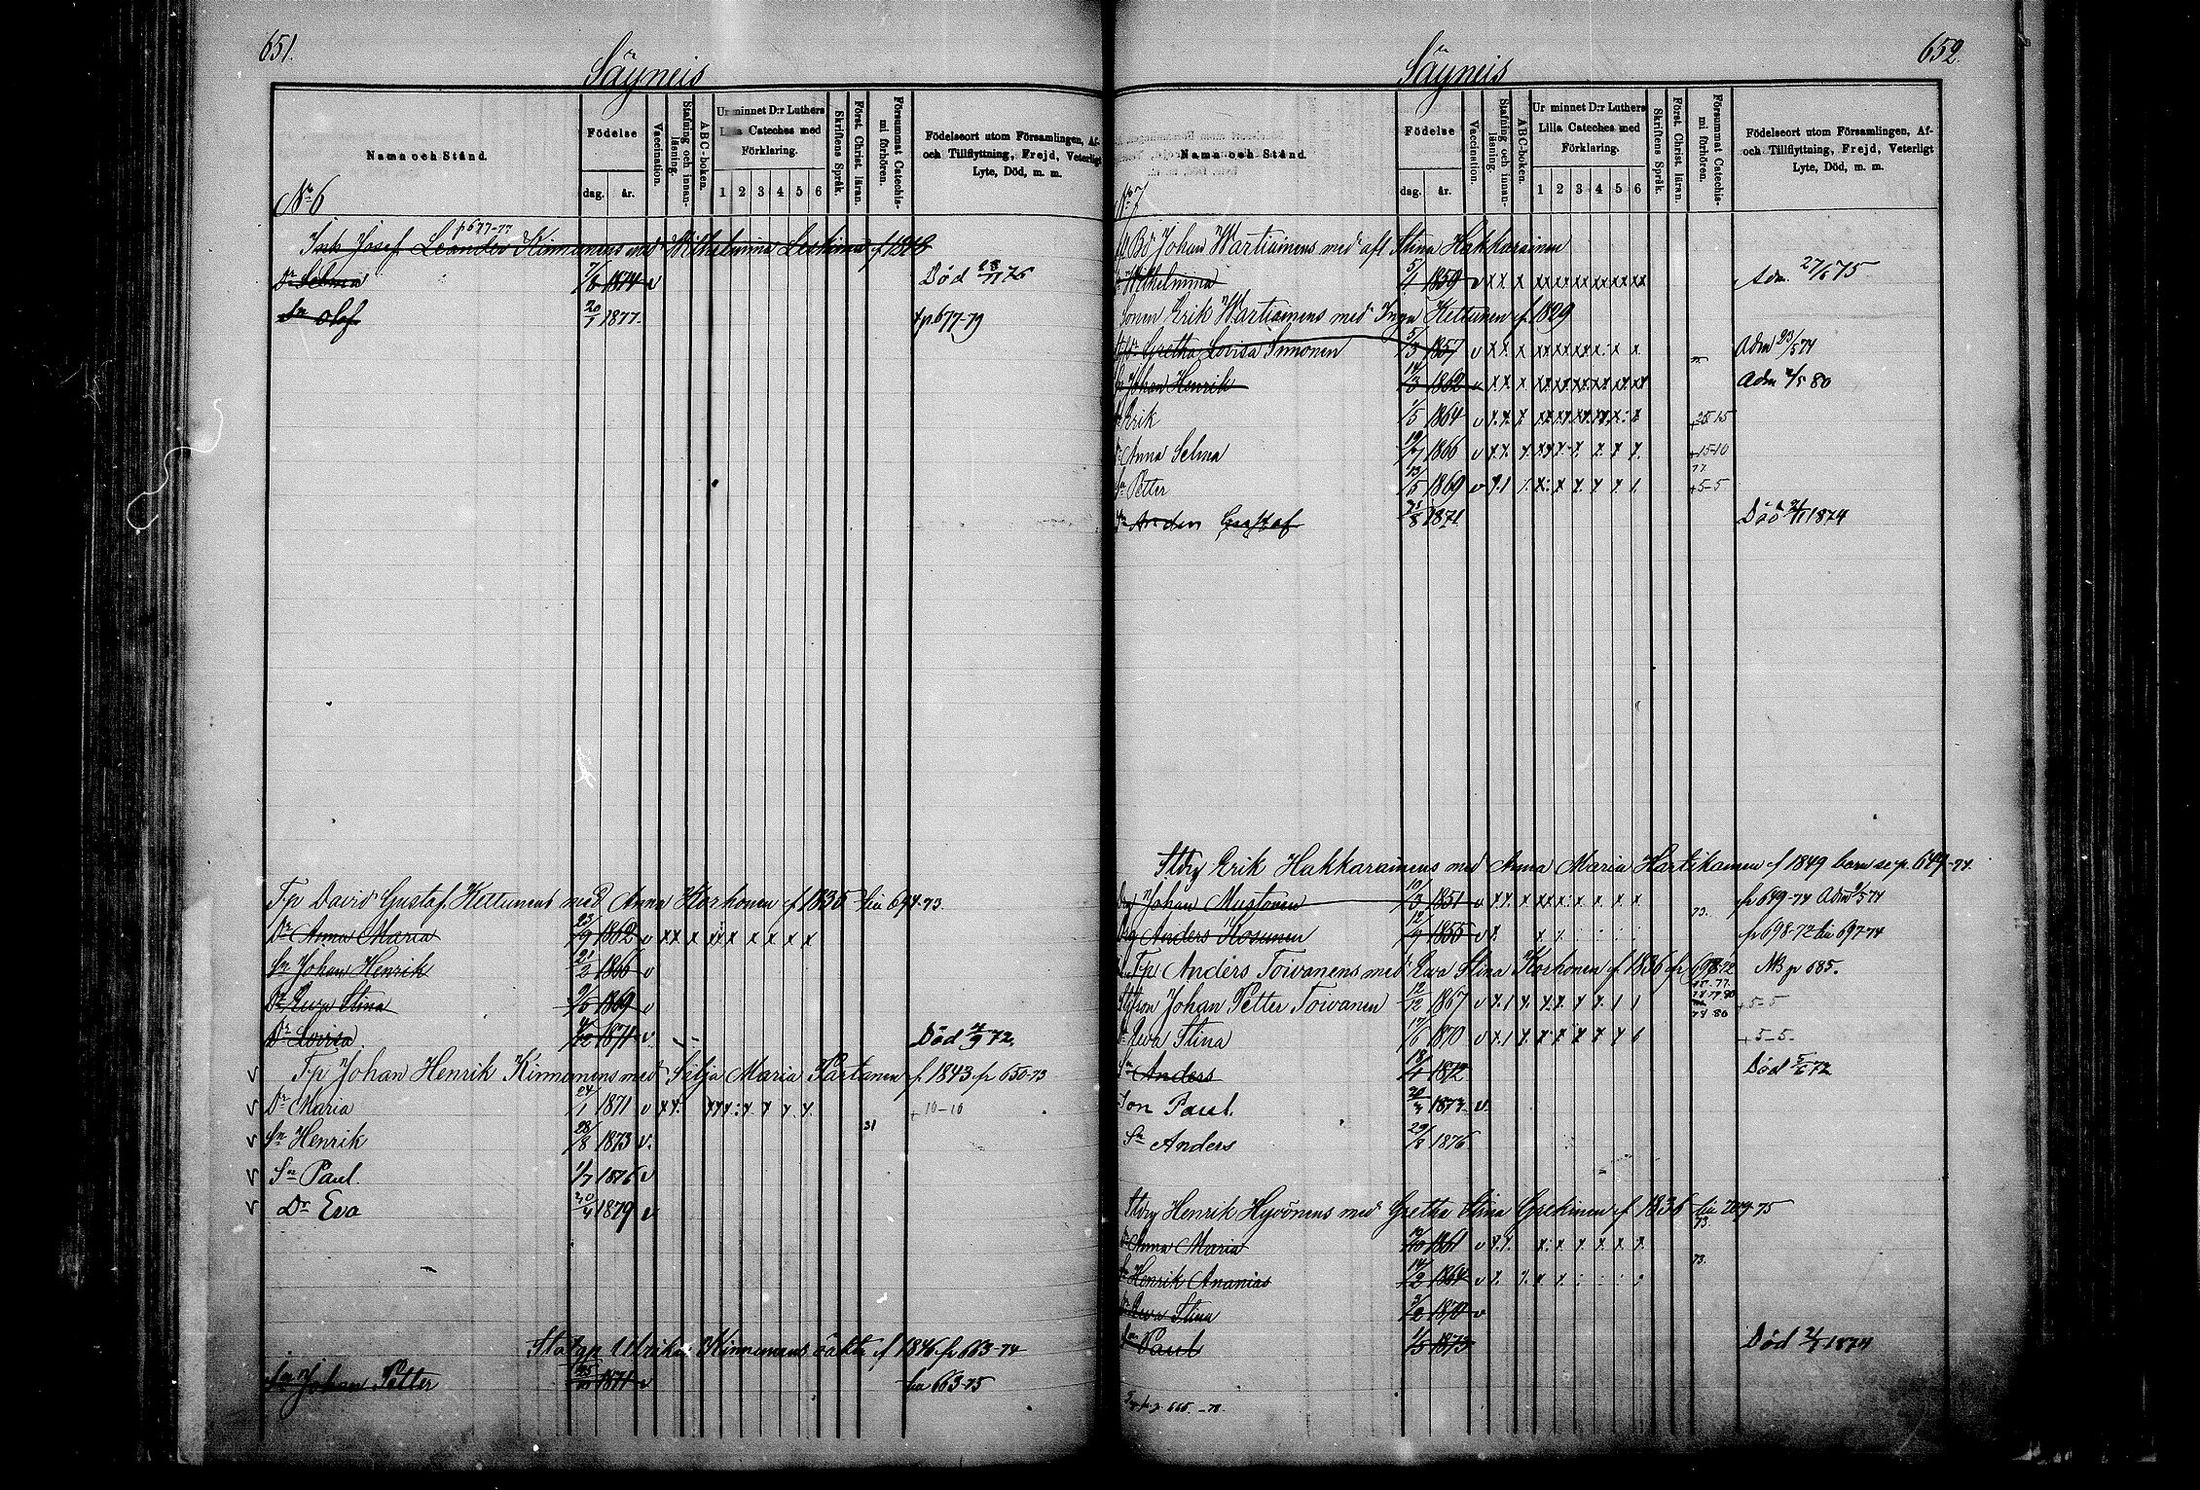 651.
Säyneis
Namn och Stånd.
Födelse
dag. år.
Vaccination.
Stafning och innanläsning.
ABC-boken.
Ur minnet D:r Luthers Lilla Cateches med Förklaring.
1 2 3 4 5 6
Skriftens Språk.
Först. Christ. läran.
Försummat Catechismi förhören.
Födelseort utom Församlingen, Af- och Tillflyttning, Frejd, Veterligt Lyte, Död, m. m.
No 6
p 677-77
Inh Josef Leander Kinnunens med Wilhelmina Leskinen f 1848
Dr Selma 1874 v Död 75
Sn Olof 20/7 1877. p. 677-79
Fp David Gustaf Kettunens med Anna Korhonen f 1835 hu 694-73.
Dr Anna Maria 23/9 1862 v x x x x x x x x x x
Sn Johan Henrik 21/2 1866 v
Dr Ewa Stina 1869 v
Dr Lovisa 1871 v. Död 72.
Fp Johan Henrik Kinnunens med Silja Maria Partanen f 1843 fr 650-73
Dr Maria 24/1 1871 v x x x x x x x x x + 10-10
Sn Henrik 28/8 1873 v. 81
Sn Paul. 1/7 1876 v
Dr Eva 20/4 1879 v
Ulrika Kinnunens oäkta f 1846 fr 663-74
Sn Johan Petter 1871 v hu 663-75
652.
Säyneis
Namn och Stånd.
Födelse
dag. år.
Vaccination.
Stafning och innanläsning.
ABC-boken.
Ur minnet D:r Luthers Lilla Cateches med Förklaring.
1 2 3 4 5 6
Skriftens Språk.
Först. Christ. läran.
Försummat Catechismi förhören.
Födelseort utom Församlingen, Af- och Tillflyttning, Frejd, Veterligt Lyte, Död, m. m.
No 7
Johan Wartiainens med afl Stina Hakkarainen
Wilhelmina 5/1 1859 v x x x x x x x x x x x Adm. 27/5 75
Sonen Erik Wartiainens med Inga Kettunen f. 1829
Gretha Lovisa Immonen 5/3 1857 v x x x x x x x x x x x Adm 23/5 74
Sn Johan Henrik 14/3 1862 v x x x x x x x x x x x Adm 2/5 80
Sn Erik 1/5 1864 v x x x x x x x x x x x + 25-15
Dr Anna Selma 19/7 1866 v x x x x x x x x x x + 15-10
77
Sn Petter 13/5 1869 v x 1 x x x x x 1 + 5-5
Sn Anders Gustaf 21/8 1871 Död 1874
Stdrg Erik Hakkarainens med Anna Maria Hartikainen f 1849 barn se p. 649-74.
Drg Johan Mustonen 10/3 1851 v x x x x x x x x x x x 73. fr 649-74 Adm 74
Drg Anders Kosunen 12/9 1855 v x x x fr 698-72 hu 697-74
Fp Anders Toivanens med Ewa Stina Korhonen f. 1836 fr 698-72 NB p 685.
Styfson Johan Petter Toivanen 12/12 1867 v x 1 x x x x x 1 1 + 5-5
Dr Ewa Stina 17/6 1870 v x 1 x x x x x x 6 + 5-5.
Sn Anders 18/4 1872 Död 5/6 72
Son Paul. 1873 v.
Sn Anders 29/8 1876
Stdrg Henrik Hyvönens med Gretha Stina f 1836 hu 75
Dr Anna Maria 1861 v x x. x x x x x x. 73.
Sn Henrik Ananias 14/2 1864 v x x x x 73.
Dr Ewa Stina 1870 v
Sn Paul 1873 Död 1874